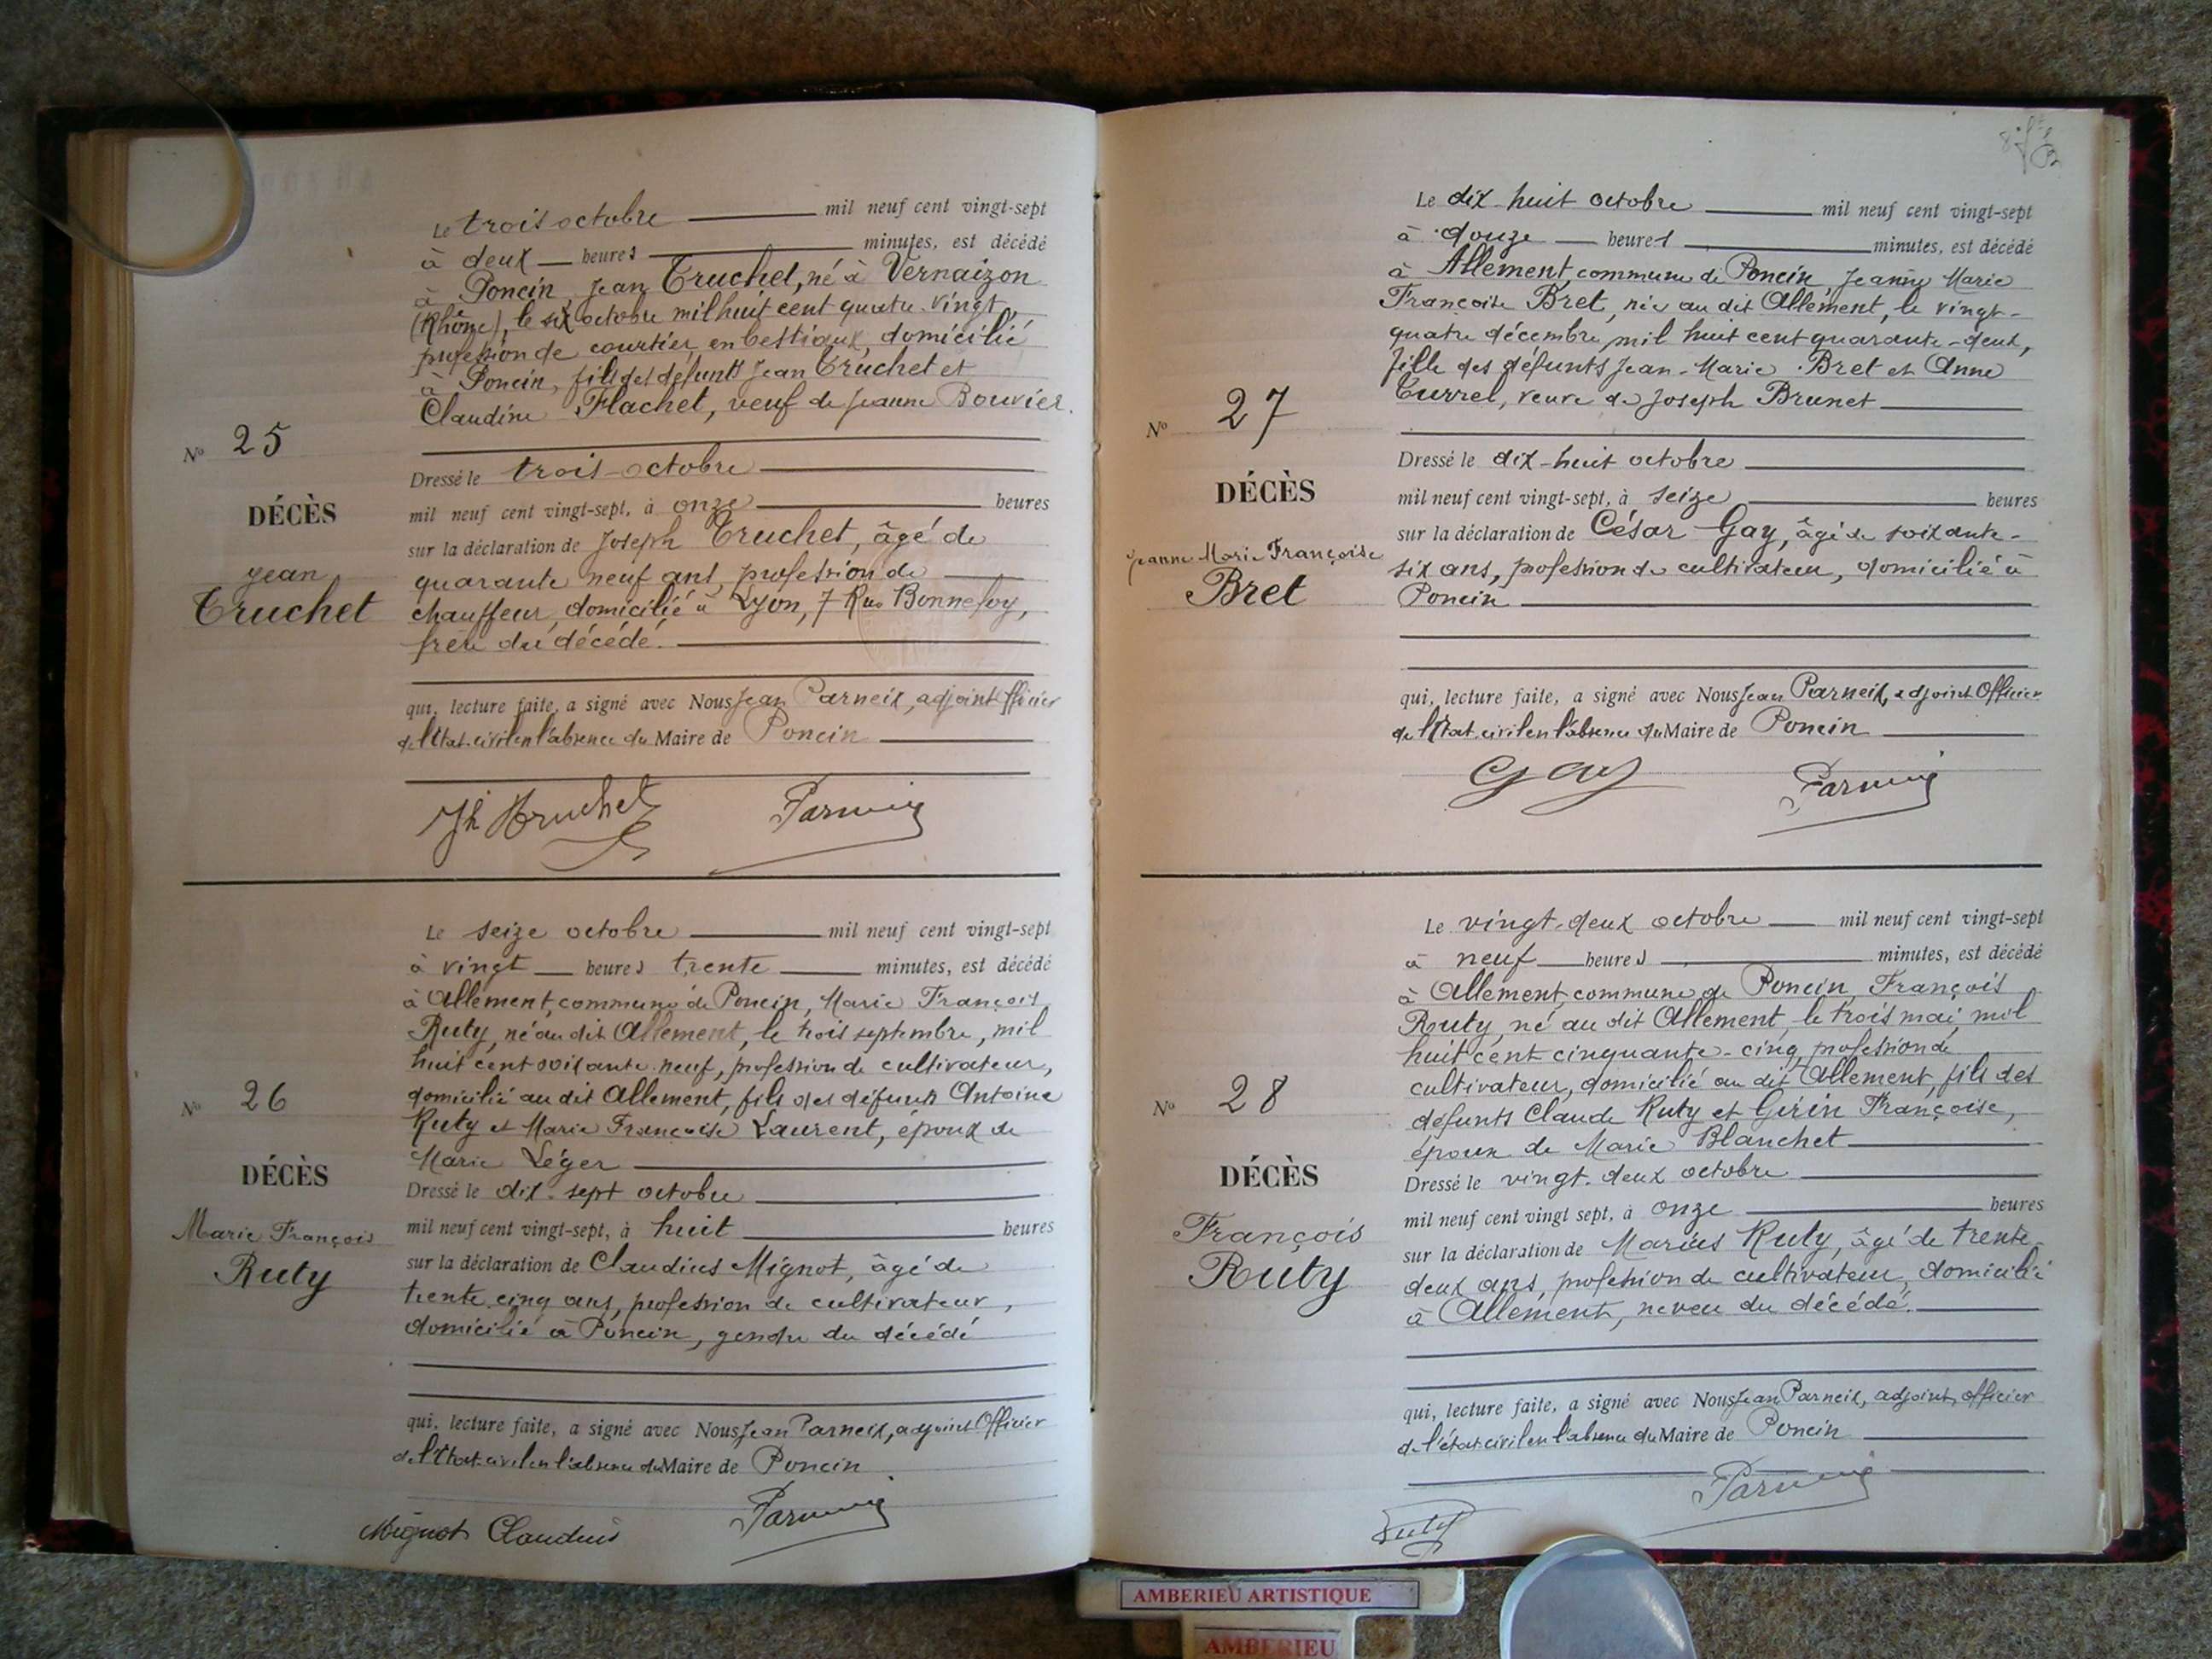 Le trois octobre mil neuf cent vingt-sept
à deux heures minutes, est décédé
à Poncin, Jean Truchet, né à Vernaizon
(Rhône), le six octobre mil huit cent quatre-vingt,
profession de courtier en bestiaux, domicilié
à Poncin, fils des défunts Jean Truchet et
Claudine Flachet, veuf de Jeanne Bouvier.
No 25
DÉCÈS
Jean
Truchet
Dressé le trois octobre
mil neuf cent vingt-sept, à onze heures
sur la déclaration de Joseph Truchet, âgé de
quarante neuf ans, profession de
chauffeur, domicilié à Lyon, 7 Rue Bonnefoy,
frère du décédé.
qui, lecture faite, a signé avec Nous Jean Parneix, adjoint Officier
de l'Etat-civil en l'absence du Maire de Poncin
Jh Truchet Parneix
Le seize octobre mil neuf cent vingt-sept
à vingt heures trente minutes, est décédé
à Allement, commune de Poncin, Marie François
Ruty, né au dit Allement, le trois septembre, mil
huit cent soixante-neuf, profession de cultivateur,
domicilié au dit Allement, fils des défunts Antoine
Ruty et Marie Françoise Laurent, époux de
Marie Léger
No 26
DÉCÈS
Marie François
Ruty
Dressé le dix-sept octobre
mil neuf cent vingt-sept, à huit heures
sur la déclaration de Claudius Mignot, âgé de
trente cinq ans, profession de cultivateur,
domicilié à Poncin, gendre du décédé
qui, lecture faite, a signé avec Nous Jean Parneix, adjoint Officier
de l'Etat-civil en l'absence du Maire de Poncin
Mignot Claudius Parneix
Le dix-huit octobre mil neuf cent vingt-sept
à douze heures minutes, est décédé
à Allement, commune de Poncin, Jeanne Marie
Françoise Bret, née au dit Allement, le vingt-
quatre décembre mil huit cent quarante-deux,
fille des défunts Jean-Marie Bret et Anne
Currel, veuve de Joseph Brunet
No 27
DÉCÈS
Jeanne Marie Françoise
Bret
Dressé le dix-huit octobre
mil neuf cent vingt-sept, à seize heures
sur la déclaration de César Gay, âgé de soixante-
six ans, profession de cultivateur, domicilié à
Poncin
qui, lecture faite, a signé avec Nous Jean Parneix, adjoint Officier
de l'Etat-civil en l'absence du Maire de Poncin
Gay Parneix
Le vingt-deux octobre mil neuf cent vingt-sept
à neuf heures minutes, est décédé
à Allement, commune de Poncin, François
Ruty, né au dit Allement, le trois mai mil
huit cent cinquante-cinq, profession de
cultivateur, domicilié au dit Allement, fils des
défunts Claude Ruty et Girin Françoise,
époux de Marie Blanchet
No 28
DÉCÈS
François
Ruty
Dressé le vingt-deux octobre
mil neuf cent vingt sept, à onze heures
sur la déclaration de Marius Ruty, âgé de trente-
deux ans, profession de cultivateur, domicilié
à Allement, neveu du décédé.
qui, lecture faite, a signé avec Nous Jean Parneix, adjoint, officier
de l'état-civil en l'absence du Maire de Poncin
Ruty Parneix
AMBERIEU ARTISTIQUE
AMBERIEU